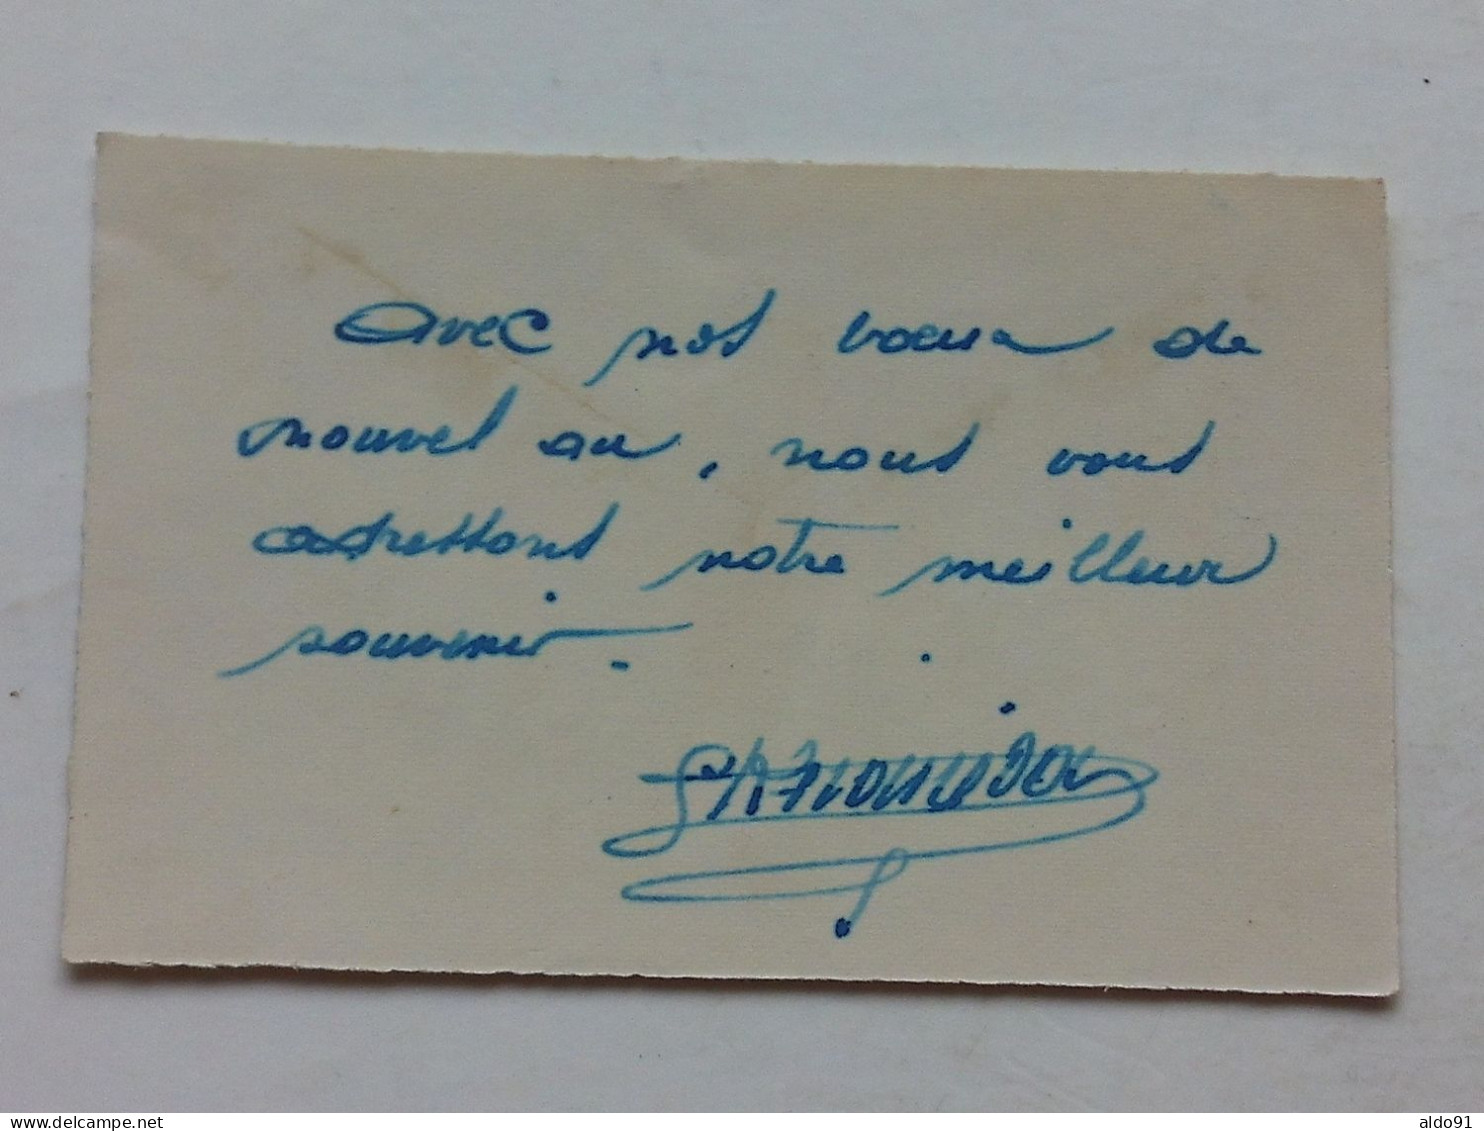 Avec nos voeux de
nouvel an, nous vous
adressons notre meilleur
souvenir.
delcampe.net
aldo91